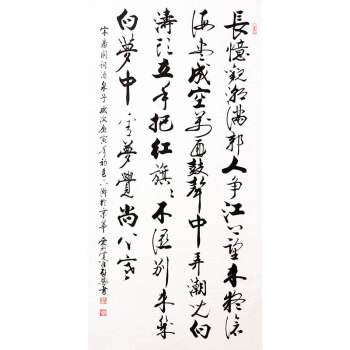 長憶觀潮滿郭人争江上望来疑滄
海盡成空萬面鼓聲中弄潮兒向
濤頭立手把紅旗〻不濕別来幾
向夢中看夢覺尚心寒
宋潘閬詞酒泉子歲次庚寅年初於京華書